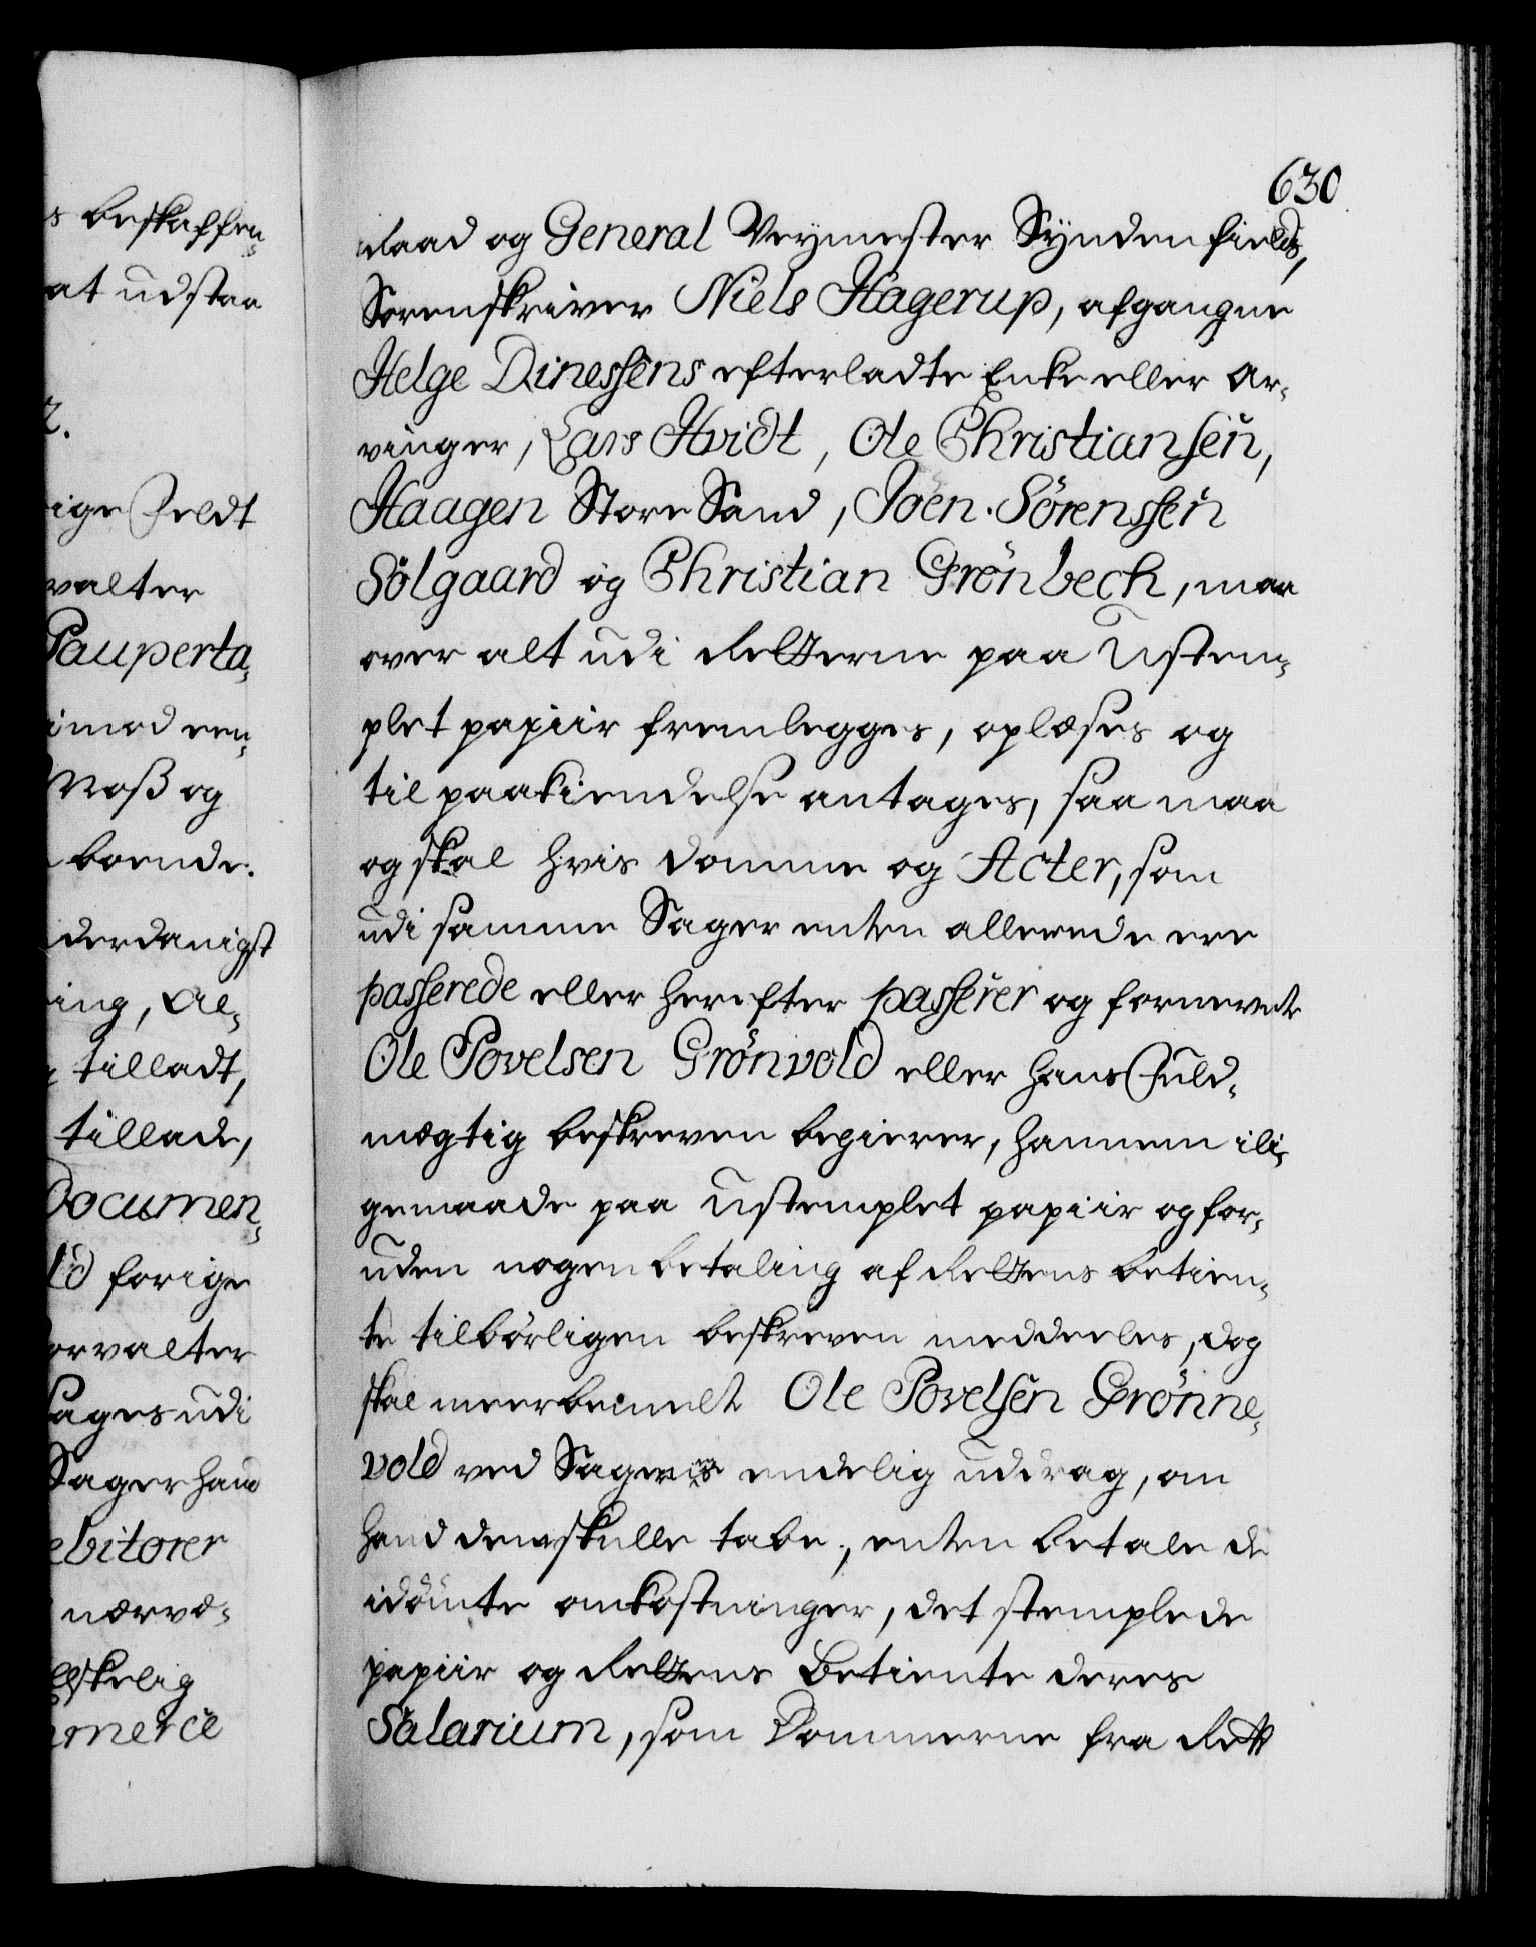 s beskaffen-
at udstaa
2.
ige Feldt
valter
Pauperta-
imod een-
Moss og
boende.
derdanigst
ing, Al-
tilladt,
tillade,
Documen-
ld forige
orvalter
sages udi
Sager hand
ebitorer
nærvæ-
lskelig
merce
630
Raad og General Veymester Syndenfields,
Sorenskriver Niels Hagerup, afgangne
Helge Dinessens efterladte Enke eller Ar-
vinger, Lars Hvidt, Ole Christiansen,
Haagen Store Sand, Joen Sørenssen
Sølgaard og Christian Grønbech, maa
over alt udi Retterne paa Ustem-
plet papiir fremlegges, oplæses og
til paakiendelse antages, saa maa
og skal hvis domme og Acter, som
udi samme Sager enten allerede ere
passerede eller herefter passerer og fornevnte
Ole Povelsen Grønvold eller hans Fuld-
mægtig beskreven begierer, hannem ili-
gemaade paa Ustemplet papiir og for-
uden nogen betaling af Rettens betien-
te tilbørligen beskreven meddeeles, dog
skal meerbemelte Ole Povelsen Grønne-
vold ved Sagernes endelig uddrag, om
hand dem skulle tabe, enten betale de
idømte omkostninger, det stemplede
papiir og Rettens Betiente deres
Salarium, som Dommerne fra Rett